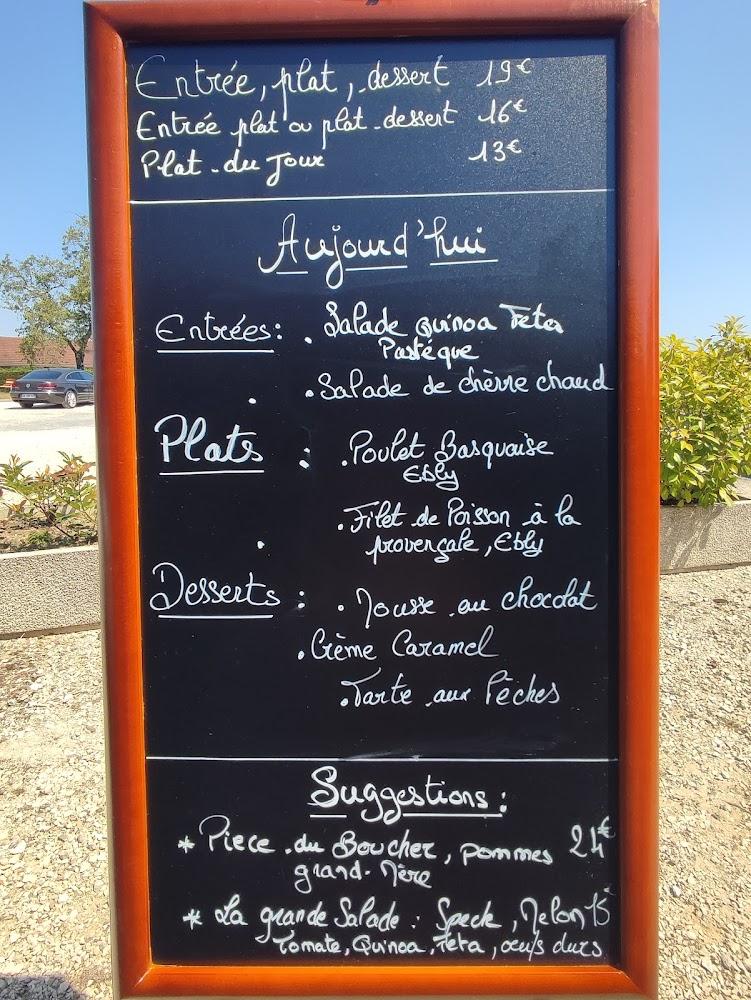 Entrée, plat, dessert 19€
Entrée plat ou plat-dessert 16€
Plat du Jour 13€
Aujourd'hui
Entrées: . Salade quinoa Feta
Pastéque
. Salade de chèvre chaud
Plats : . Poulet Basquaise
Ebly
. Filet de Poisson à la
provençale, Ebly
Desserts : . Mousse au chocolat
. Crème Caramel
. Tarte aux Pêches
Suggestions :
* Piece du Boucher, pommes 24€
grand-Mère
* La grande Salade : Speck, Melon 15
Tomate, Quinoa, Feta, oeufs durs